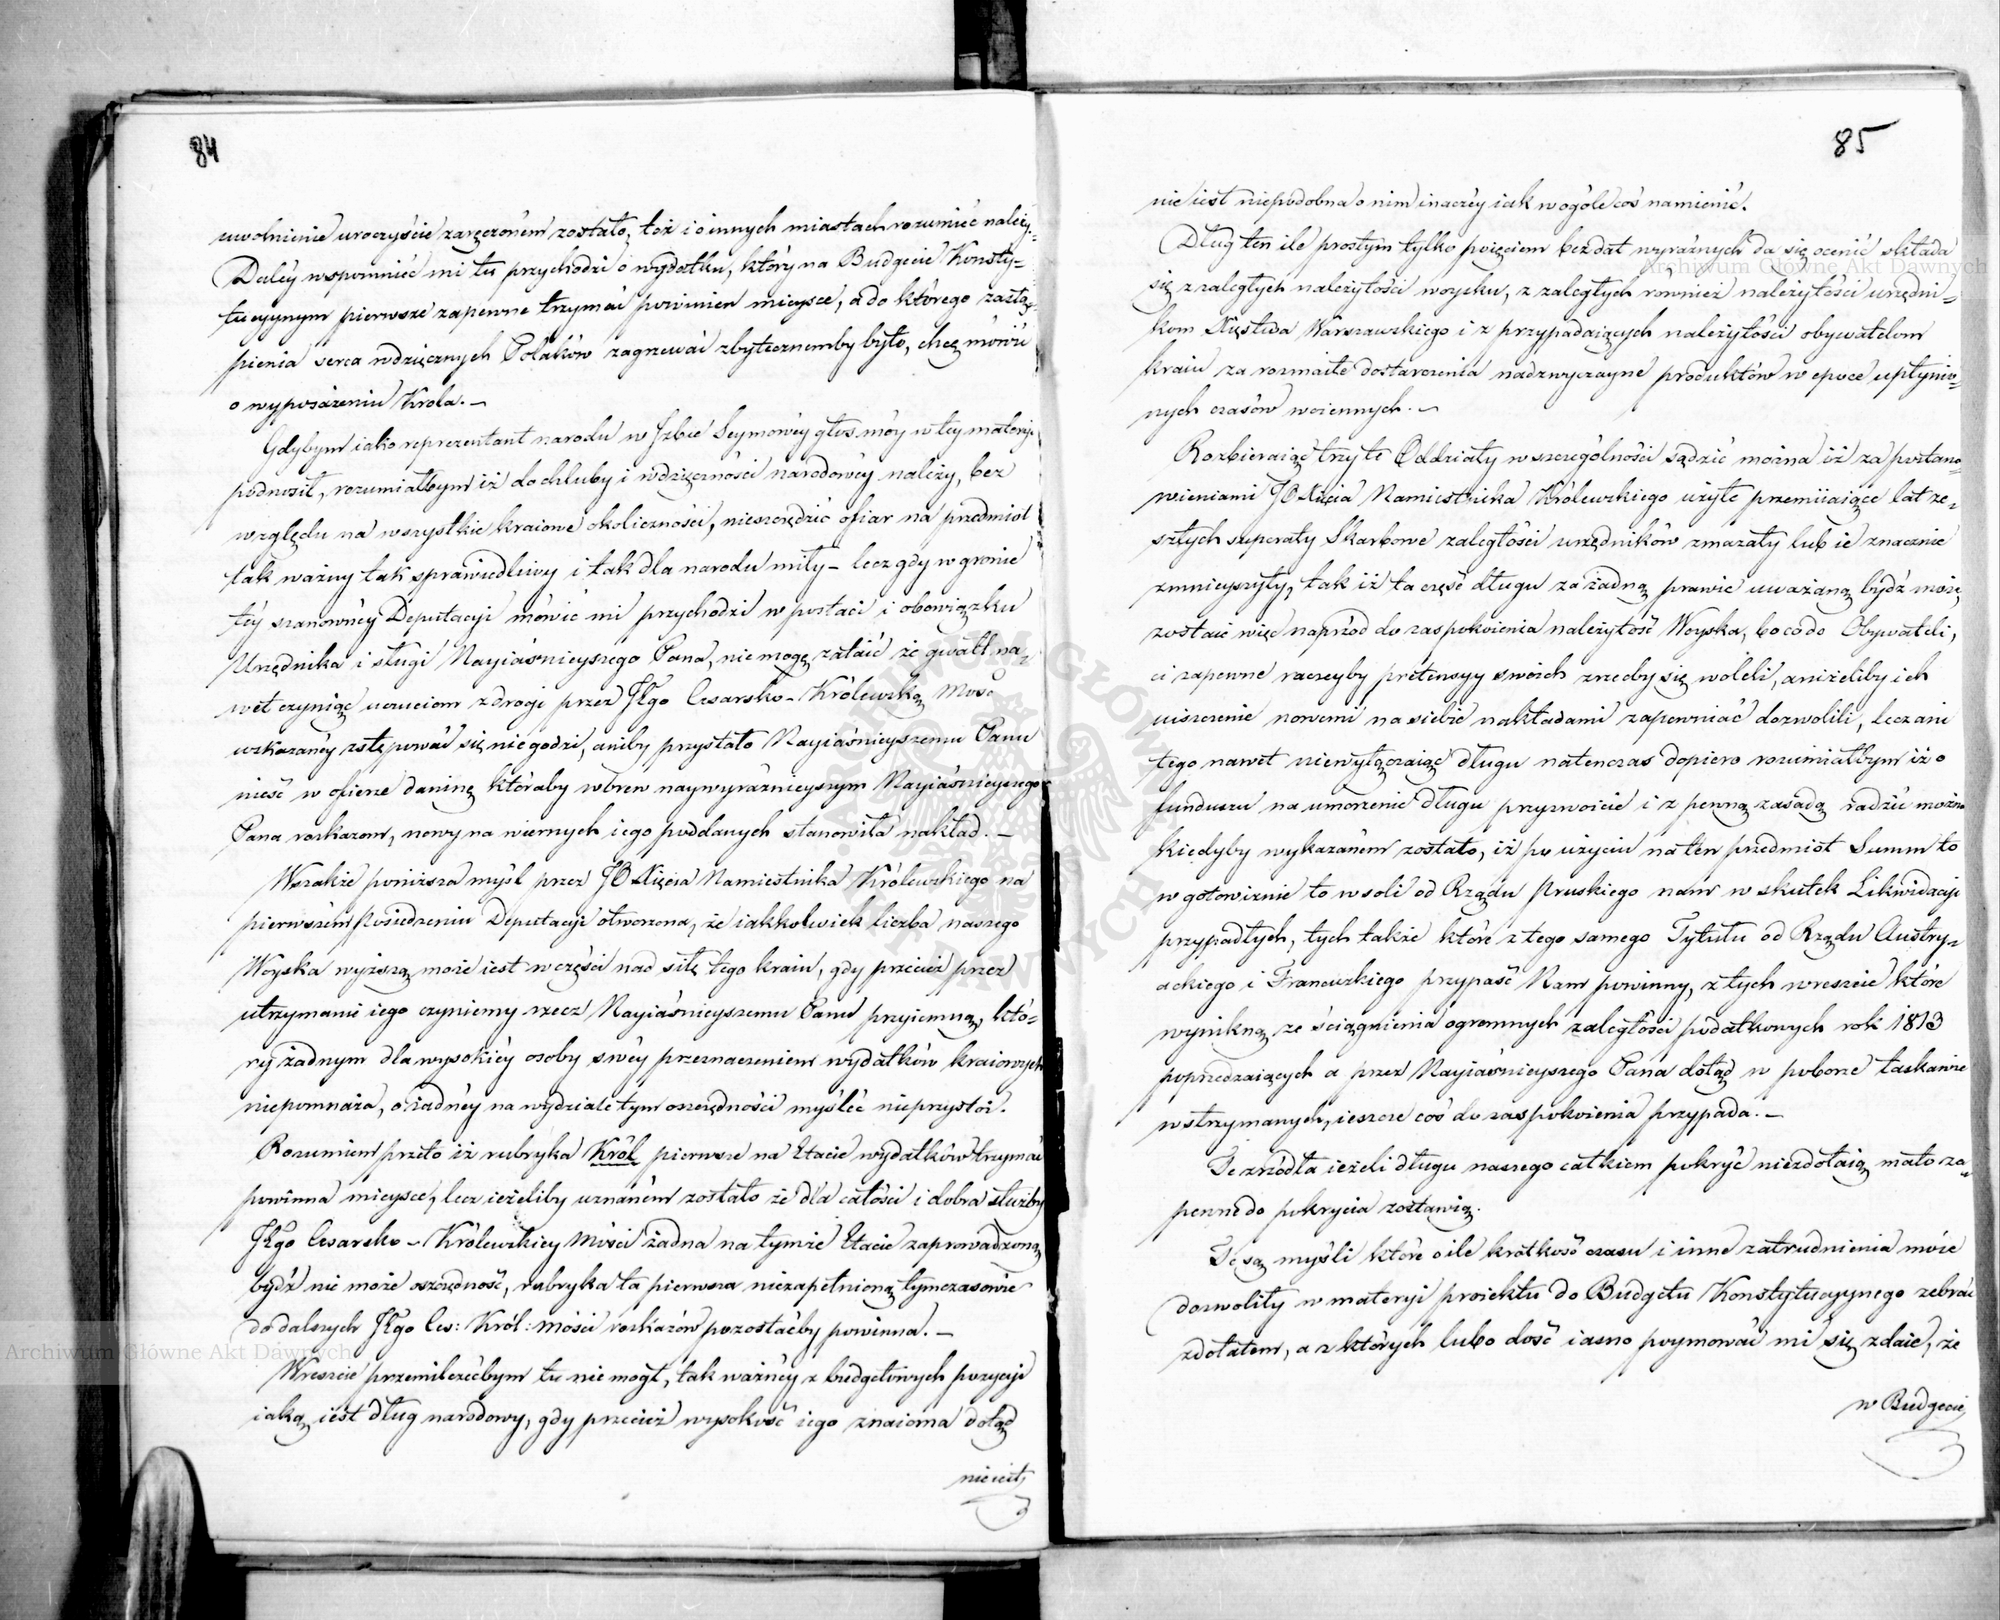 84
uwolnienie uroczyście zaręczoném zostało, toż i o innych miastach rozumieć należy.
Daléy wspomnieć mi tu przychodzi o wydatku, który na Budgecie Konsty-
tucyynym pierwsze zapewne trzymać powinien mieysce, a do którego zastą-
pienia serca wdzięcznych Polaków zagrzewać zbytecznemby było, chcę mówić
o wyposażeniu Króla. —
Gdybym iako reprezentant narodu w Jzbie Seymowéy głos móy w tey materyi
podnosił, rozumiałbym iż do chluby i wdzięczności narodowéy należy, bez
względu na wszystkie kraiowe okoliczności, nieszczędzić ofiar na przedmiot
tak ważny tak sprawiedliwy i tak dla narodu miły — lecz gdy w gronie
téy szanownéy Deputacyi mówić mi przychodzi w postaci i obowiązku
Urzędnika i sługi Nayiaśnieyszego Pana, nie mogę zataić że gwałt na-
wet czyniąc uczuciom z drogi przez JKgo Cesarsko-Królewską Mość
wskazanéy zstępować się nie godzi, aniby przystało Nayiaśnieyszemu Panu
nieść w ofierze daninę któraby wbrew naywyraźnieyszym Nayiaśnieyszego
Pana rozkazom, nowy na wiernych iego poddanych stanowiła nakład. —
Wszakże poniższa myśl przez JO Xięcia Namiestnika Królewskiego na
pierwszém Posiedzeniu Deputacyi otworzona, że iakkolwiek liczba naszego
Woyska wyższą może iest w części nad siłę tego kraiu, gdy przecież przez
utrzymanie iego czyniemy rzecz Nayiaśnieyszemu Panu przyiemną, któ-
ry żadnym dla wysokiéy osoby swéy przeznaczeniem wydatków kraiowych
niepomnaża, o żadnéy na wydziale tym oszczędności myśléć nieprzystoi.
Rozumiem przeto iż rubryka Król pierwsze na Etacie wydatków trzymać
powinna mieysce, lecz ieżeliby uznaném zostało że dla całości i dobra służby
JKgo Cesarsko-Królewskiey Mości żadna na tymże Etacie zaprowadzoną
bydź nie może oszczędność, rubryka ta pierwsza niezapełnioną tymczasowie
do dalszych JKgo Ces: Król: Mości rozkazów pozostaćby powinna. —
Wreszcie przemilczéćbym tu nie mogł, tak ważnéy z budgetowych pozycyi
iaką iest dług narodowy, gdy przecież wysokość iego znaioma dotąd
nie iest,
85
nie iest niepodobna o nim inaczéy iak w ogóle coś namienić.
Dług ten ile prostym tylko poięciem bez dat wyraźnych da się ocenić składa
się z zaległych należytości woysku, z zaległych również należytości urzędni-
kom Xięstwa Warszawskiego i z przypadaiących należytości obywatelom
kraiu za rozmaite dostarczenia nadzwyczayne produktów w epoce upłynio-
nych czasów woiennych. —
Rozbieraiąc trzy te Oddziały w szczególności sądzić można iż za postano-
wieniami JO Xięcia Namiestnika Królewskiego użyte przemiiaiące lat ze-
szłych superaty Skarbowe zaległości urzędników zmazały lub ie znacznie
zmnieyszyły, tak iż ta część długu za żadną prawie uważaną bydź może,
zostaie więc naprzód do zaspokoienia należytość Woyska, bo co do Obywateli,
ci zapewne raczeyby pretensyy swoich zrzec by się woleli, aniżeliby ich
uiszczenie nowemi na siebie nakładami zapewniać dozwolili, lecz ani
tego nawet niewyłączaiąc długu natenczas dopiero rozumiałbym iż o
funduszu na umorzenie długu przyzwoicie i z pewną zasadą radzić można
kiedyby wykazaném zostało, iż po użyciu na tén przedmiot Summ to
w gotowiznie to w soli od Rządu Pruskiego nam w skutek Likwidacyi
przypadłych, tych także które z tego samego Tytułu od Rządu Austry-
ackiego i Francuzkiego przypaść Nam powinny, z tych wreszcie które
wynikną ze ściągnienia ogromnych zaległości podatkowych rok 1813
poprzedzaiących a przez Nayiaśnieyszego Pana dotąd w poborze łaskawie
wstrzymanych, ieszcze coś do zaspokoienia przypada. —
Te źródła ieżeli długu naszego całkiem pokryć niezdołaią mało za-
pewne do pokrycia zostawią.
Te są myśli które o ile krótkość czasu i inne zatrudnienia moie
dozwoliły w materyi proiektu do Budgetu Konstytucyynego zebrać
zdołałem, a z których lubo dość iasno poymować mi się zdaie, że
w Budgecie
Archiwum Główne Akt Dawnych
Archiwum Główne Akt Dawnych
ARCHIWUM GŁÓWNE AKT DAWNYCH